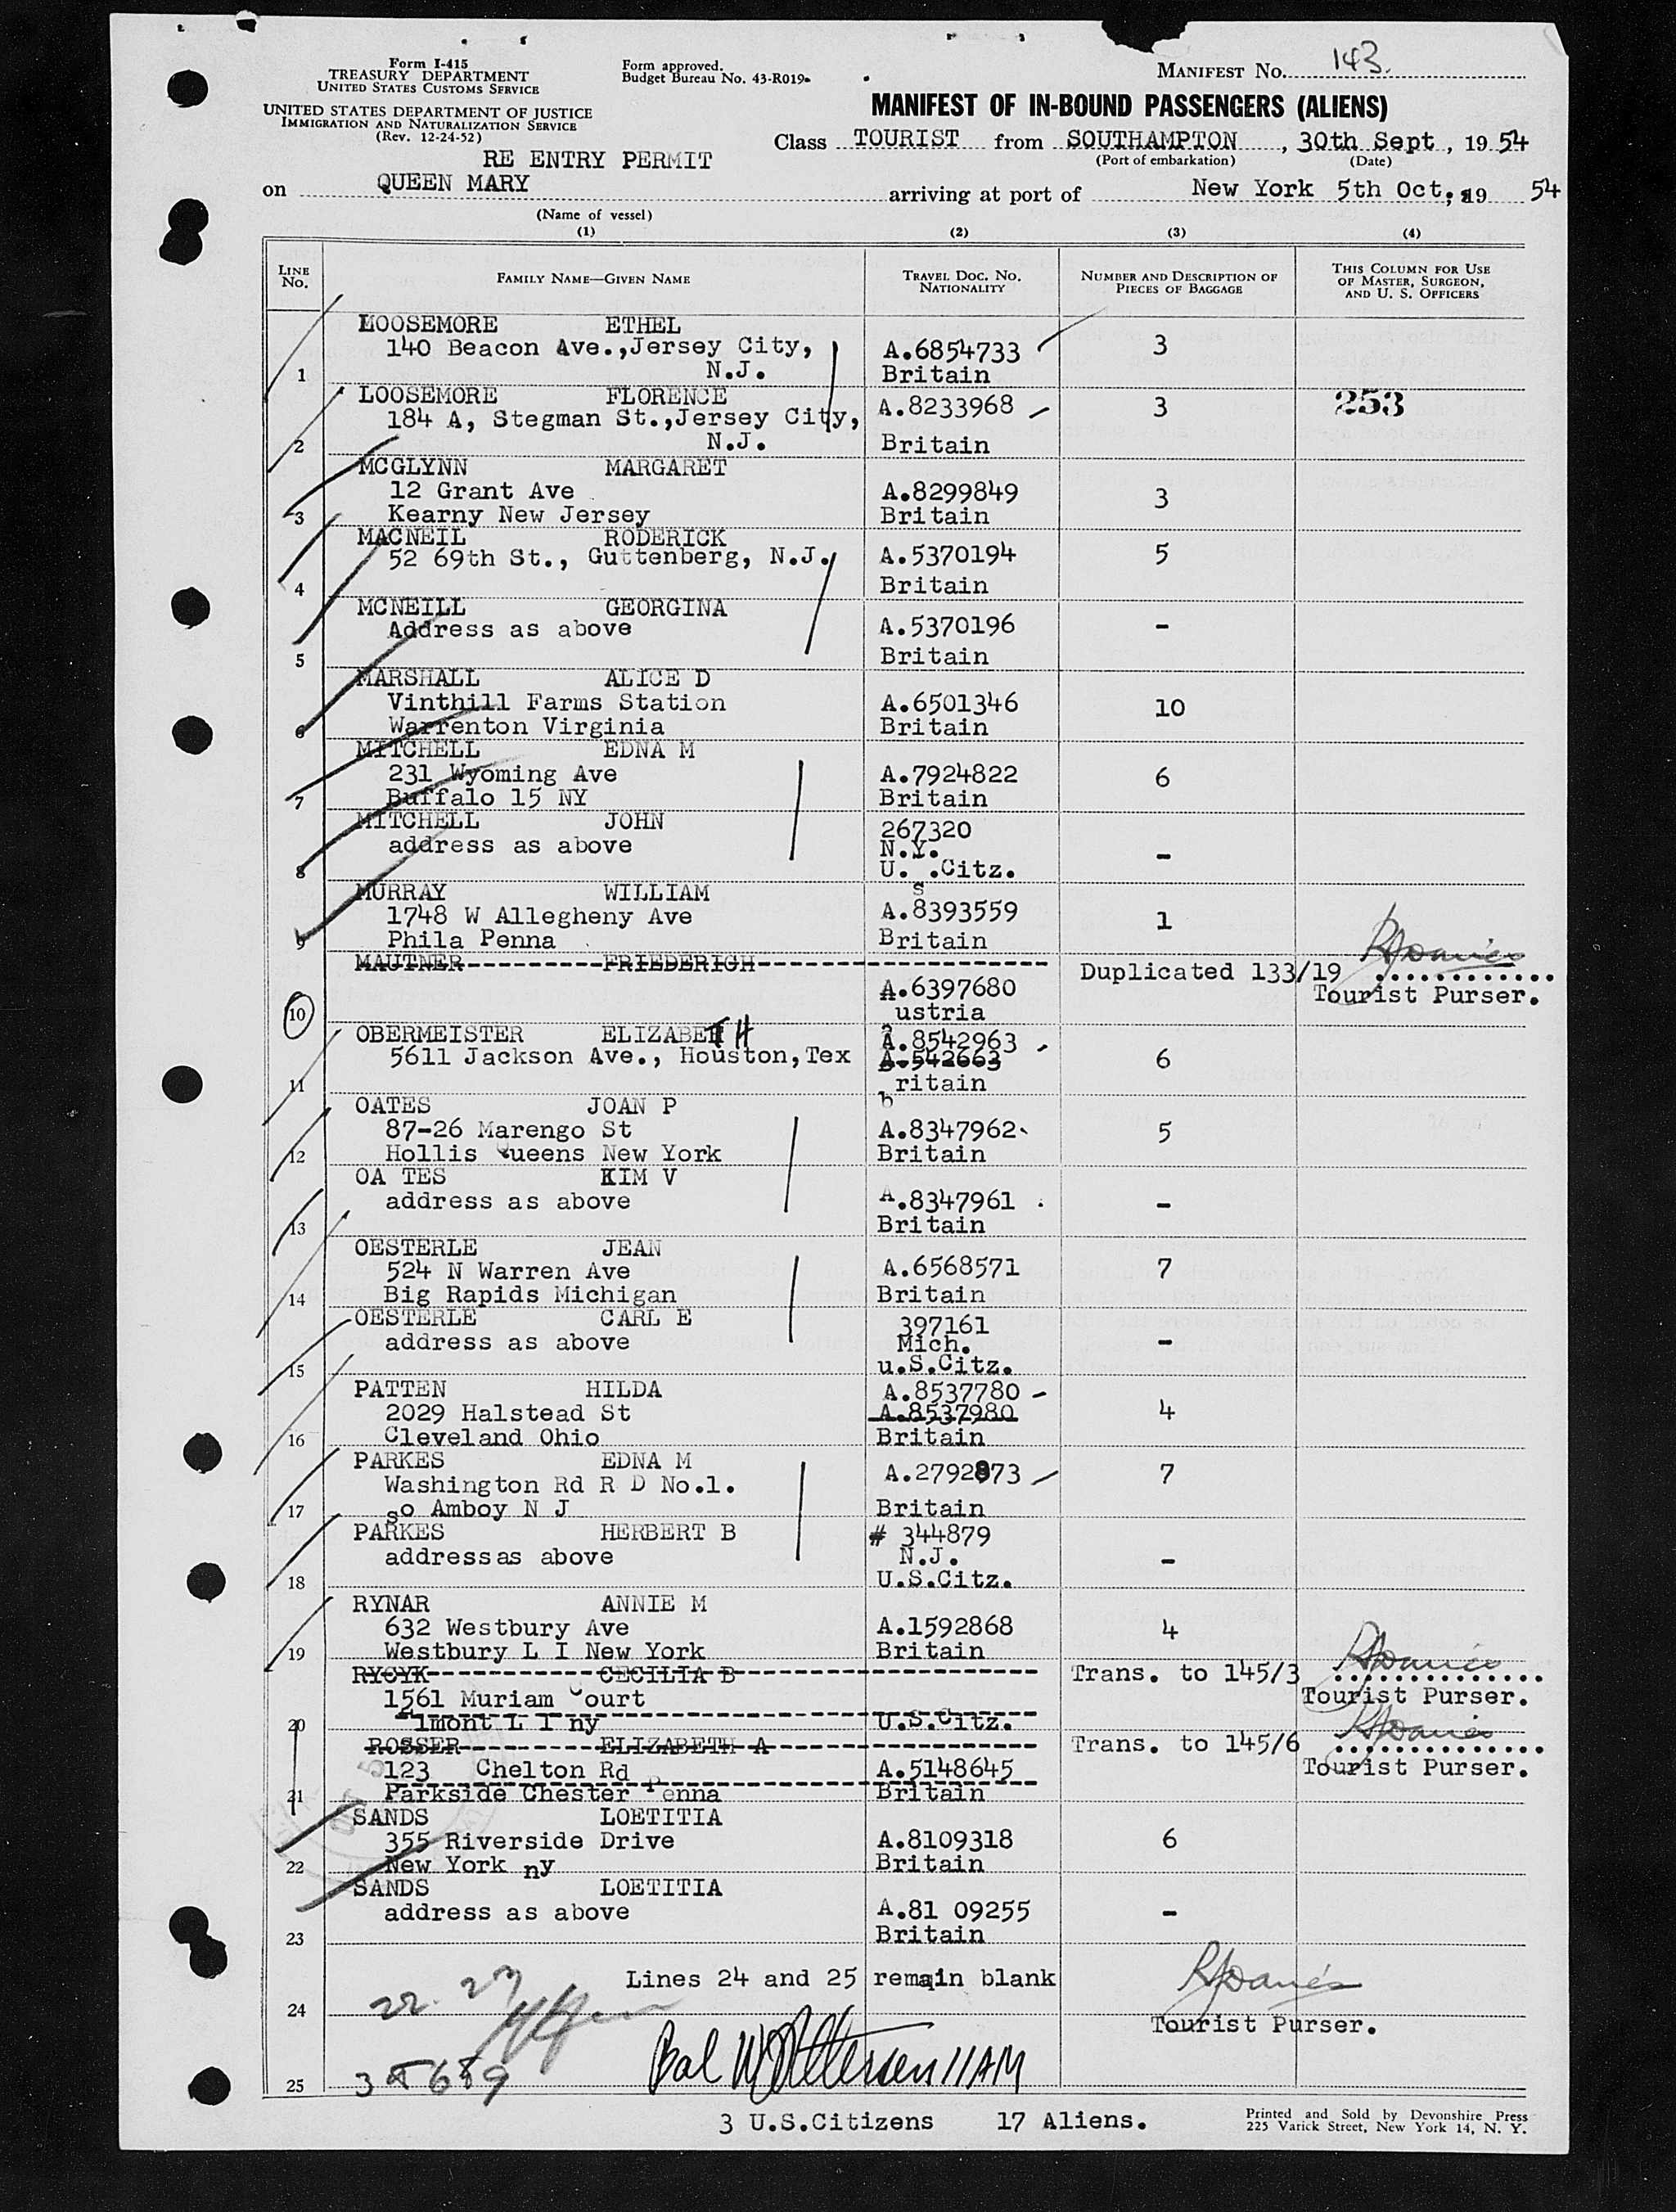 Form I-415
TREASURY DEPARTMENT
UNITED STATES CUSTOMS SERVICE
UNITED STATES DEPARTMENT OF JUSTICE
IMMIGRATION AND NATURALIZATION SERVICE
(Rev. 12-24-52)
Form approved.
Budget Bureau No. 43-R019
MANIFEST NO. 143.
MANIFEST OF IN-BOUND PASSENGERS (ALIENS)
Class TOURIST from SOUTHAMPTON, 30th Sept, 1954
(Port of embarkation) (Date)
RE ENTRY PERMIT
on QUEEN MARY arriving at port of New York 5th Oct, 19 54
(Name of vessel)
(1) (2) (3) (4)
LINE NO. FAMILY NAME—GIVEN NAME TRAVEL DOC. NO. NATIONALITY NUMBER AND DESCRIPTION OF PIECES OF BAGGAGE THIS COLUMN FOR USE OF MASTER, SURGEON, AND U. S. OFFICERS
LOOSEMORE ETHEL
140 Beacon Ave.,Jersey City, A.6854733 3
1 N.J. Britain
LOOSEMORE FLORENCE A.8233968 3 253
184 A, Stegman St.,Jersey City,
2 N.J. Britain
MCGLYNN MARGARET
12 Grant Ave A.8299849 3
3 Kearny New Jersey Britain
MACNEIL RODERICK
52 69th St., Guttenberg, N.J. A.5370194 5
4 Britain
MCNEILL GEORGINA
Address as above A.5370196 -
5 Britain
MARSHALL ALICE D
Vinthill Farms Station A.6501346 10
6 Warrenton Virginia Britain
MITCHELL EDNA M
231 Wyoming Ave A.7924822 6
7 Buffalo 15 NY Britain
MITCHELL JOHN 267320
address as above N.Y. -
8 U. .Citz.
s
MURRAY WILLIAM
1748 W Allegheny Ave A.8393559 1
9 Phila Penna Britain
MAUTNER FRIEDERICH Duplicated 133/19
A.6397680 Tourist Purser.
10 ustria
a
OBERMEISTER ELIZABETH A.8542963
5611 Jackson Ave., Houston,Tex A.542663 6
11 ritain
b
OATES JOAN P
87-26 Marengo St A.8347962 5
12 Hollis Queens New York Britain
OA TES KIM V
address as above A.8347961 -
13 Britain
OESTERLE JEAN
524 N Warren Ave A.6568571 7
14 Big Rapids Michigan Britain
OESTERLE CARL E 397161
address as above Mich. -
15 u.S.Citz.
PATTEN HILDA A.8537780
2029 Halstead St A.8537980 4
16 Cleveland Ohio Britain
PARKES EDNA M
Washington Rd R D No.1. A.2792873 7
17 so Amboy N J Britain
PARKES HERBERT B # 344879
addressas above N.J. -
18 U.S.Citz.
RYNAR ANNIE M
632 Westbury Ave A.1592868 4
19 Westbury L I New York Britain
RYCYK CECILIA B Trans. to 145/3
1561 Muriam Court Tourist Purser.
20 lmont L I ny U.S.Citz.
ROSSER ELIZABETH A Trans. to 145/6
123 Chelton Rd A.5148645 Tourist Purser.
21 Parkside Chester Penna Britain
SANDS LOETITIA
355 Riverside Drive A.8109318 6
22 New York ny Britain
SANDS LOETITIA
address as above A.81 09255 -
23 Britain
Lines 24 and 25 remain blank
22. 23
24 Tourist Purser.
25
3 U.S.Citizens 17 Aliens.
Printed and Sold by Devonshire Press
225 Varick Street, New York 14, N. Y.